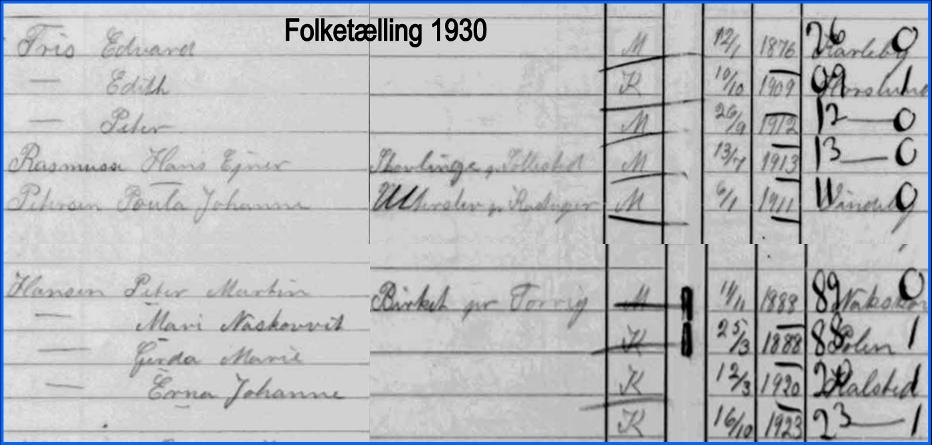 Folketælling 1930
Friis Edvard M 12/1 1876 26 Karleby 0
— Edith K 10/10 1909 09 1
— Peter M 26/9 1912 12 — 0
Rasmussen Hans Ejner M 13/7 1913 13 — 0
Petersen Poula Johanne M 6/1 1911 Vindeby 0
Hansen Peter Martin Birket pr Torrig M 1888 89 Nakskov 0
— Mari Naskovvit K 25/3 1888 88 Polen 1
— Gerda Marie K 12/3 1920 20 Halsted
— Erna Johanne K 16/10 1923 23 — 1